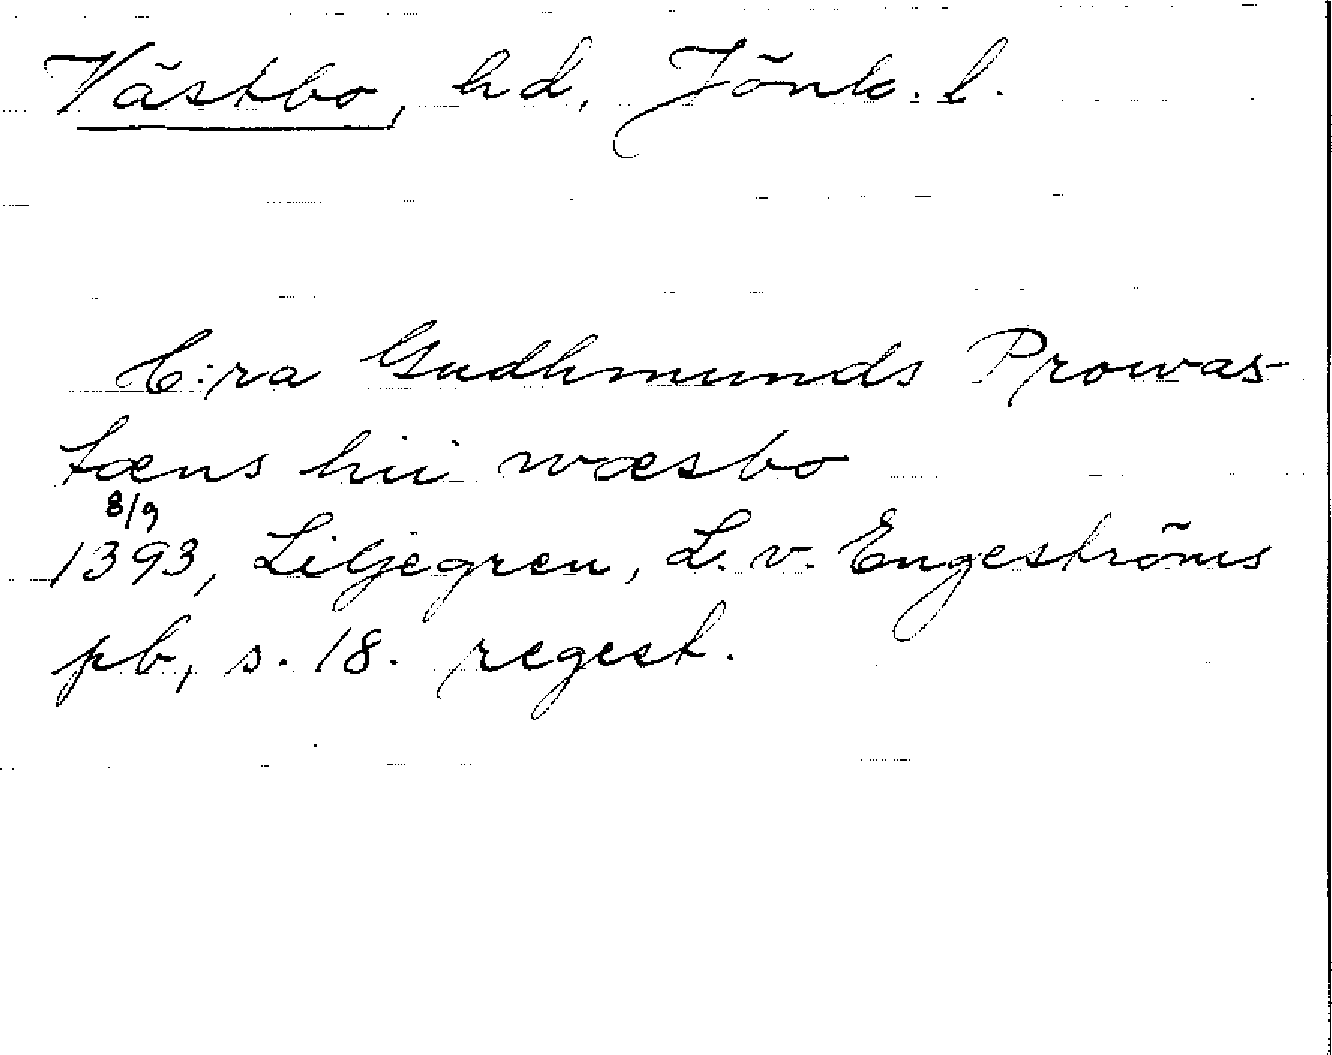 Västbo, hd, Jönk. l.
C:ra Gudhmunds Prowas-
tæns hii wæsbo
8/9
1393, Liljegren, L. v. Engeströms
pb, s. 18. regest.